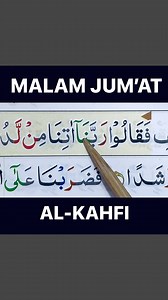 MALAM JUM'AT
فَقَالُوا رَبَّنَآ اٰتِنَا مِنْ لَّدُ
شَدًا فَضَرَبْنَا عَلٰٓى
AL-KAHFI